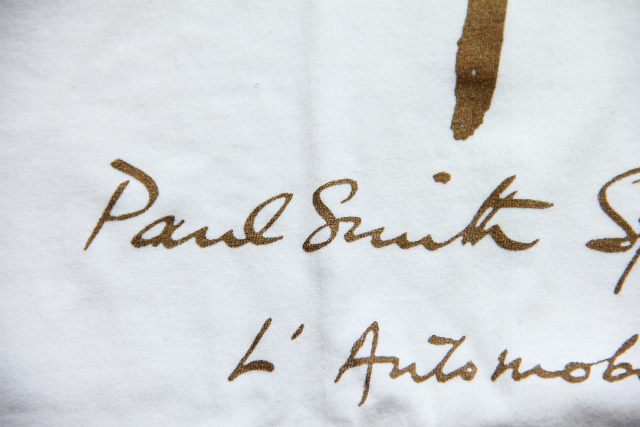 Paul Smith Sp
L' Automob